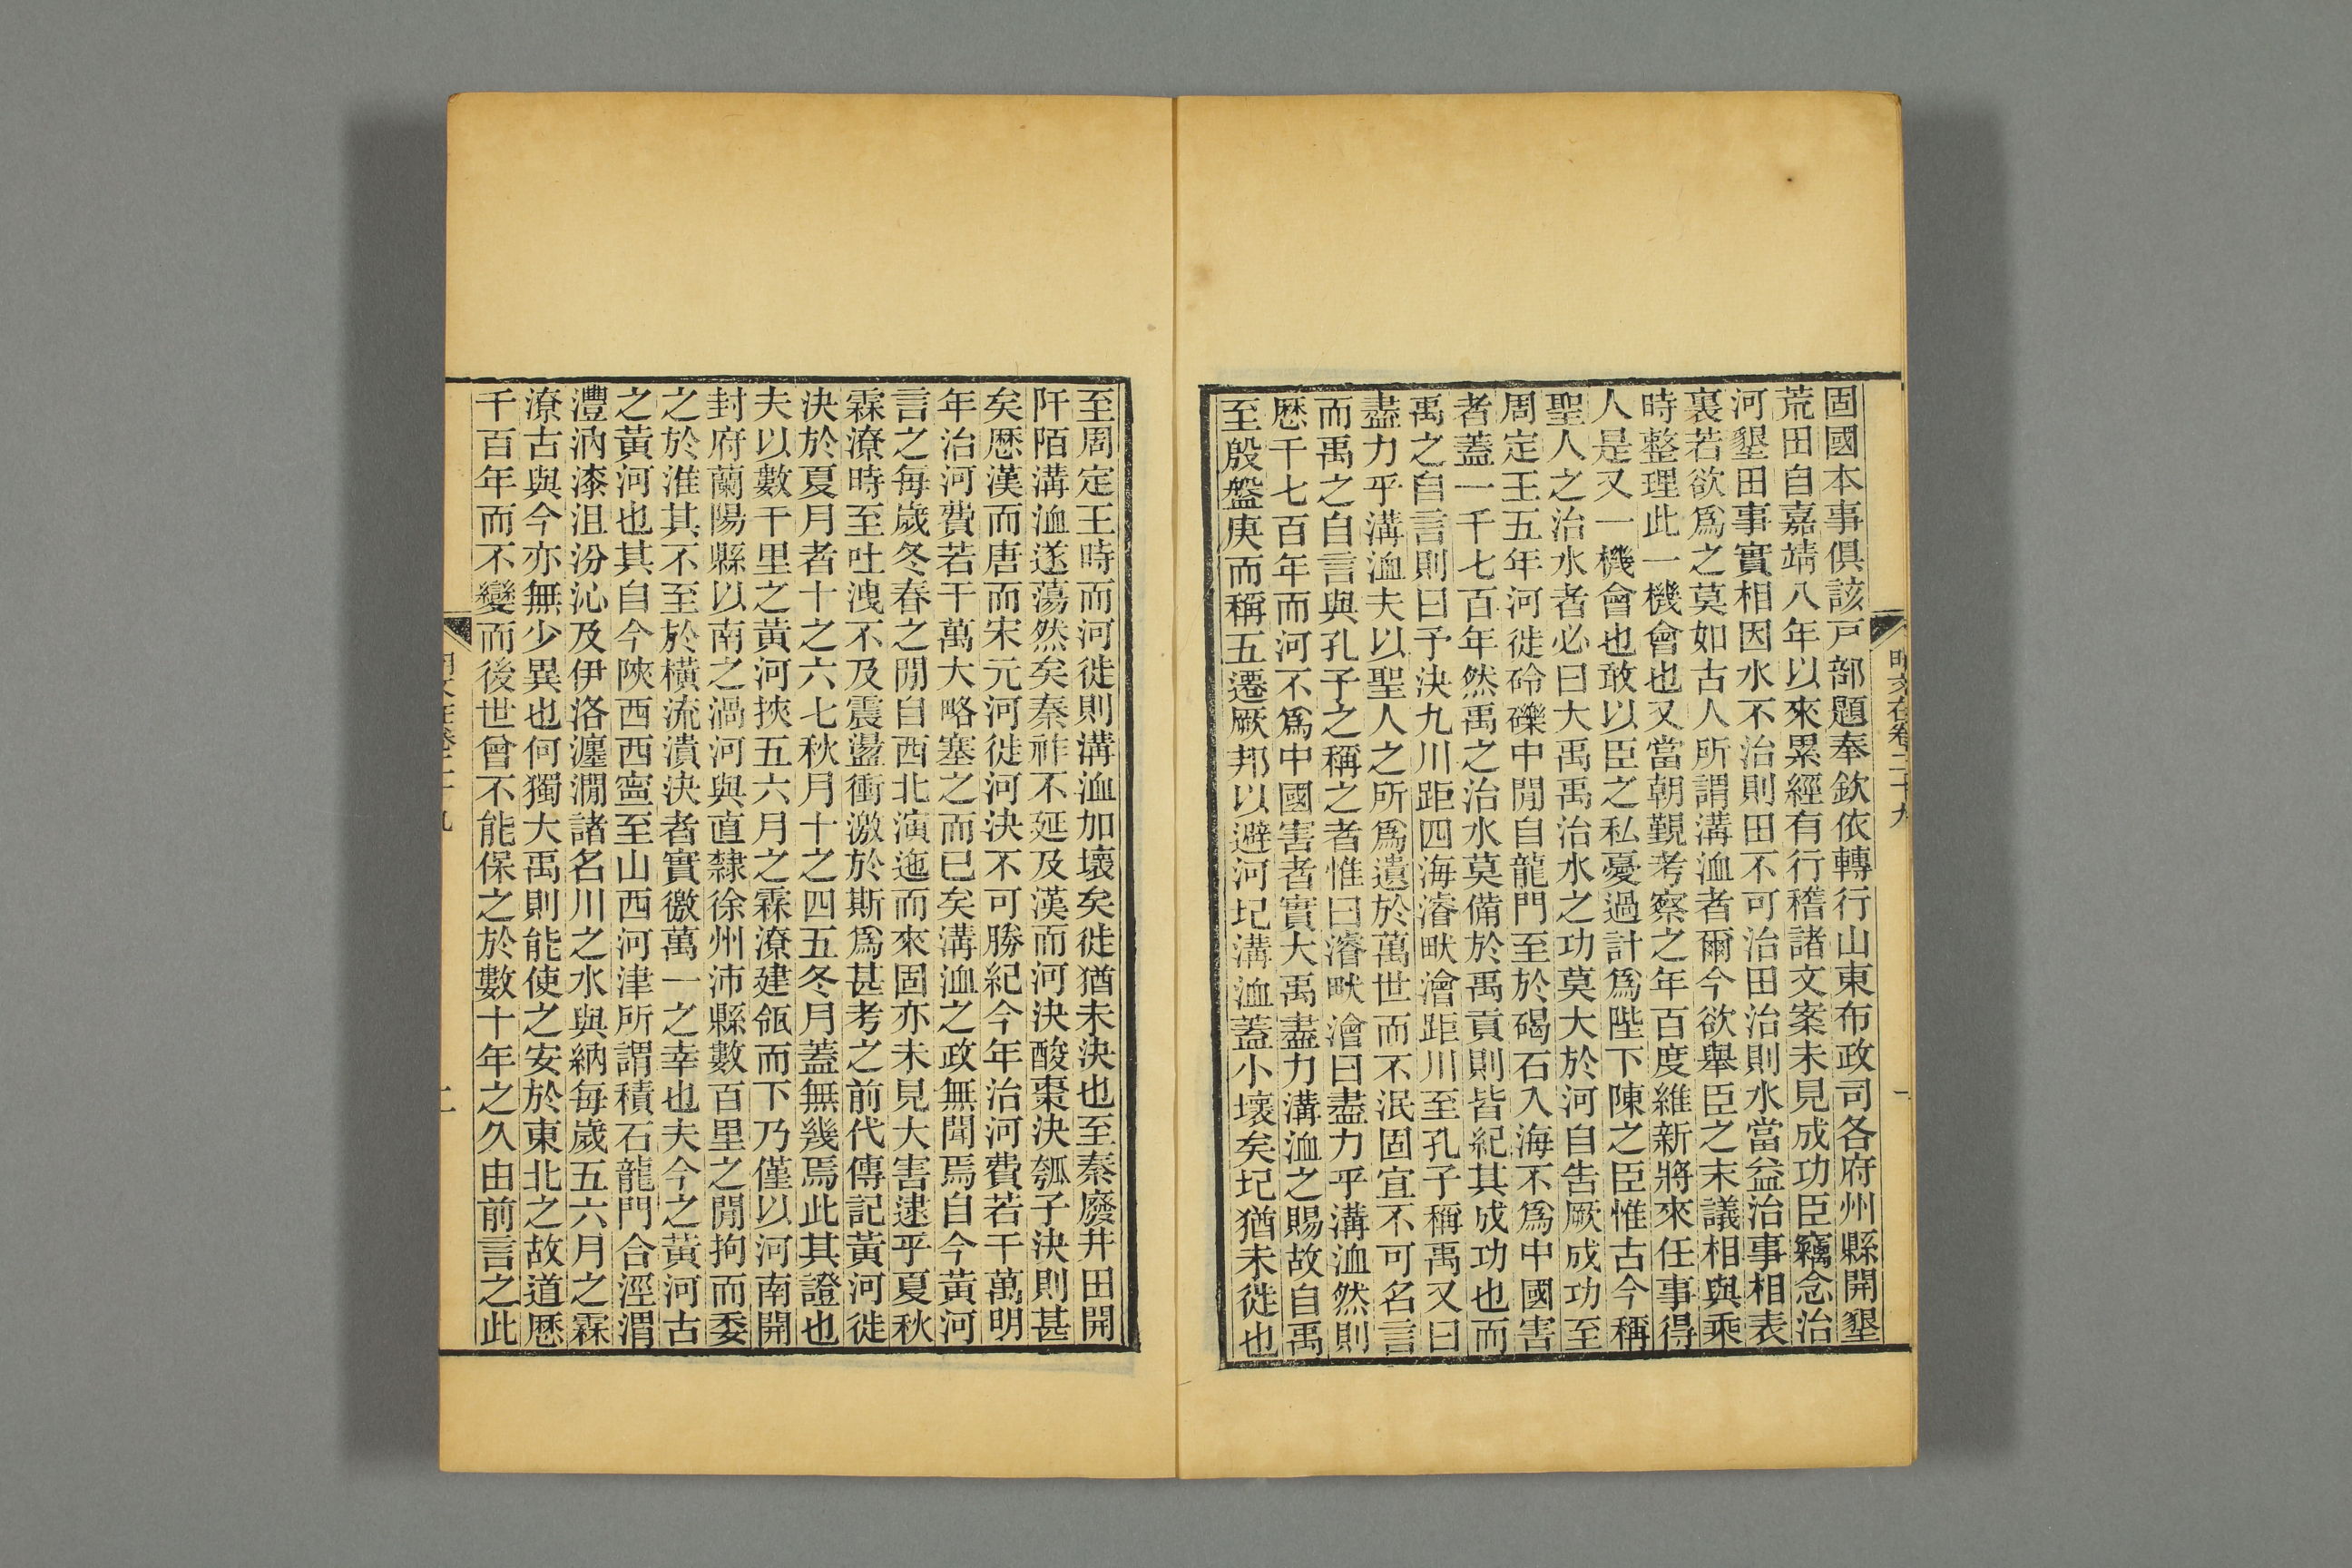 固國本事俱該戸部題奉欽依轉行山東布政司各府州縣開墾
荒田自嘉靖八年以來累經有行稽諸文案未見成功臣竊念治
河墾田事實相因水不治則田不可治田治則水當益治事相表
裏若欲爲之莫如古人所謂溝洫者爾今欲舉臣之末議相與乘
時整理此一機會也又當朝覲考察之年百度維新將來任事得
人是又一機會也敢以臣之私憂過計爲陛下陳之臣惟古今稱
聖人之治水者必曰大禹禹治水之功莫大於河自告厥成功至
周定王五年河徙砱礫中閒自龍門至於碣石入海不爲中國害
者蓋一千七百年然禹之治水莫備於禹貢則皆紀其成功也而
禹之自言則曰予決九川距四海濬畎澮距川至孔子稱禹又曰
盡力乎溝洫夫以聖人之所爲遺於萬世而不泯固宜不可名言
而禹之自言與孔子之稱之者惟曰濬畎澮曰盡力乎溝洫然則
厯千七百年而河不爲中國害者實大禹盡力溝洫之賜故自禹
至殷盤庚而稱五遷厥邦以避河圮溝洫蓋小壞矣圮猶未徙也
明文在卷二十九
一
至周定王時而河徙則溝洫加壞矣徙猶未決也至秦廢井田開
阡陌溝洫遂蕩然矣秦祚不延及漢而河決酸棗決瓠子決則甚
矣厯漢而唐而宋元河徙河決不可勝紀今年治河費若干萬明
年治河費若干萬大略塞之而已矣溝洫之政無聞焉自今黃河
言之每歲冬春之閒自西北演迤而來固亦未見大害逮乎夏秋
霖潦時至吐洩不及震盪衝激於斯爲甚考之前代傳記黃河徙
決於夏月者十之六七秋月十之四五冬月蓋無幾焉此其證也
夫以數千里之黃河挾五六月之霖潦建瓴而下乃僅以河南開
封府蘭陽縣以南之渦河與直隸徐州沛縣數百里之閒拘而委
之於淮其不至於橫流潰決者實徼萬一之幸也夫今之黃河古
之黃河也其自今陝西西寧至山西河津所謂積石龍門合涇渭
灃汭漆沮汾沁及伊洛瀍澗諸名川之水與納每歲五六月之霖
潦古與今亦無少異也何獨大禹則能使之安於東北之故道厯
千百年而不變而後世曾不能保之於數十年之久由前言之此